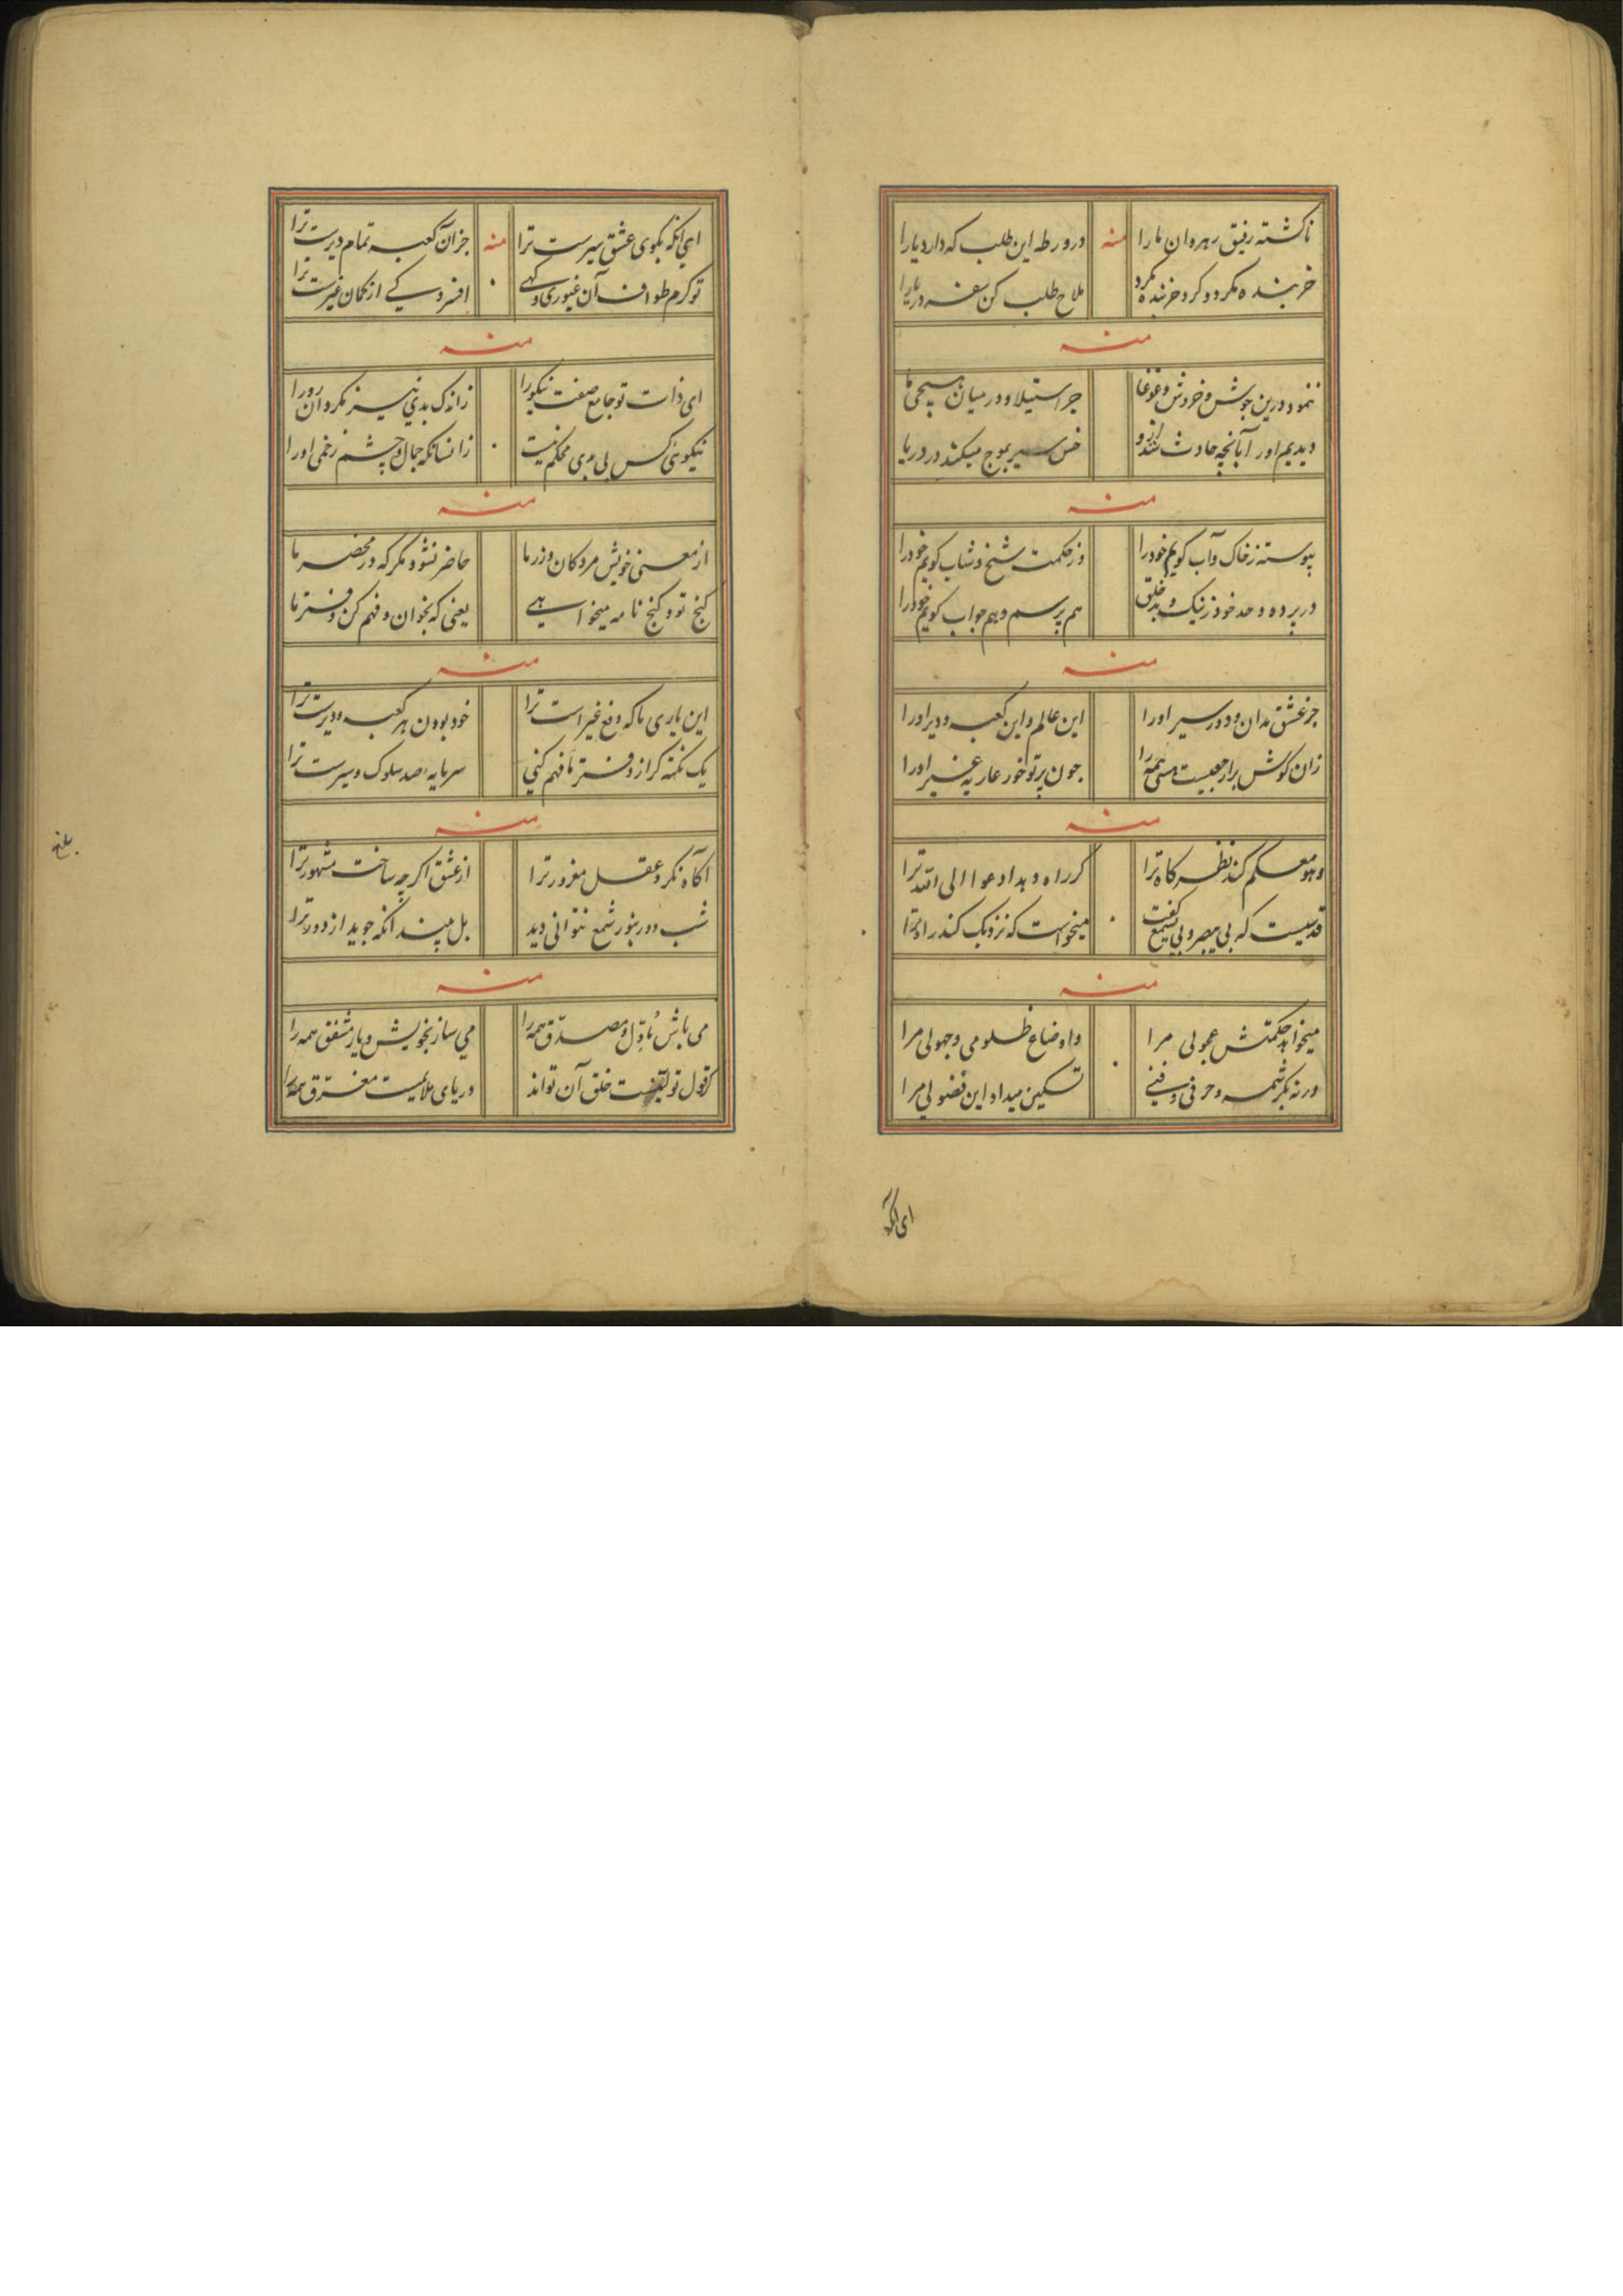 ناکشته رفیق رهروان ما را منه در ورطه این طلب که دارد یارا
خربنده مکرد و کرد خربنده مکرد ملاح طلب کن سفر دریا را
منه
ننمود درین جوش و خروش و غوغا جز استیلا و در میان هیچی ما
دیدیم او را با آنچه حادث شد ازو خس سیر بموج میکند در دریا
منه
پیوسته ز خاک و آب کویم خود را وز حکمت شیخ و شاب کویم خود را
در پرده وحد خود ز نیک و بد خلق هم پرسم و هم جواب کویم خود را
منه
جز عشق مدان ودور سیر او را این عالم و این کعبه و دیر او را
زان کوش برار هستی همه را چون پرتو خور عاریه غیر او را
منه
وهو معکم کند نظر کاه ترا کر راه دهد ادعوا الی الله ترا
قدسیست که بی یبصر و بی یسمع کفت میخواست که نزدیک کند راه ترا
منه
میخواند حکمتش عجولی مرا واوضاع ظلومی و جهولی مرا
ورنه بکرشمه و حرفی و فنی تسکین میداد این فضولی مرا
ای آنکه
ای آنکه بکوی عشق سیرست ترا منه جز آن کعبه تمام دیرست ترا
تو کرم طواف آن غیوری و کهی افسردکی از کمان غیرست ترا
منه
ای ذات تو جامع صفت نیکو را زاندک بدیی نیز مکردان رو را
نیکویی کس بی بدی محکم نیست زانسانکه جمال و چشم زخمی او را
منه
از معنی خویش مرد کان و زر ما حاضر نشود مکر که در محضر ما
کنج تو و کنج نامه میخواهیی یعنی که بخوان و فهم کن دفتر ما
منه
این یاری ما که دفع غیر است ترا خود بودن هر کعبه و دیرست ترا
یک نکته کر از دفتر ما فهم کنی سرمایه صد سلوک و سیرست ترا
منه
آکاه نکرد عقل مغرور ترا از عشق اکرچه ساخت مشهور ترا
شب دور بنور شمع نتوانی دید بل بیند آنکه جوید از دور ترا
منه
می باش مأوّل و مصدّق همه را می ساز بخویش و یار مشفق همه را
کر قول تو خلق آن تواند دریای ملایمیست مغرّق همه را
بلغ